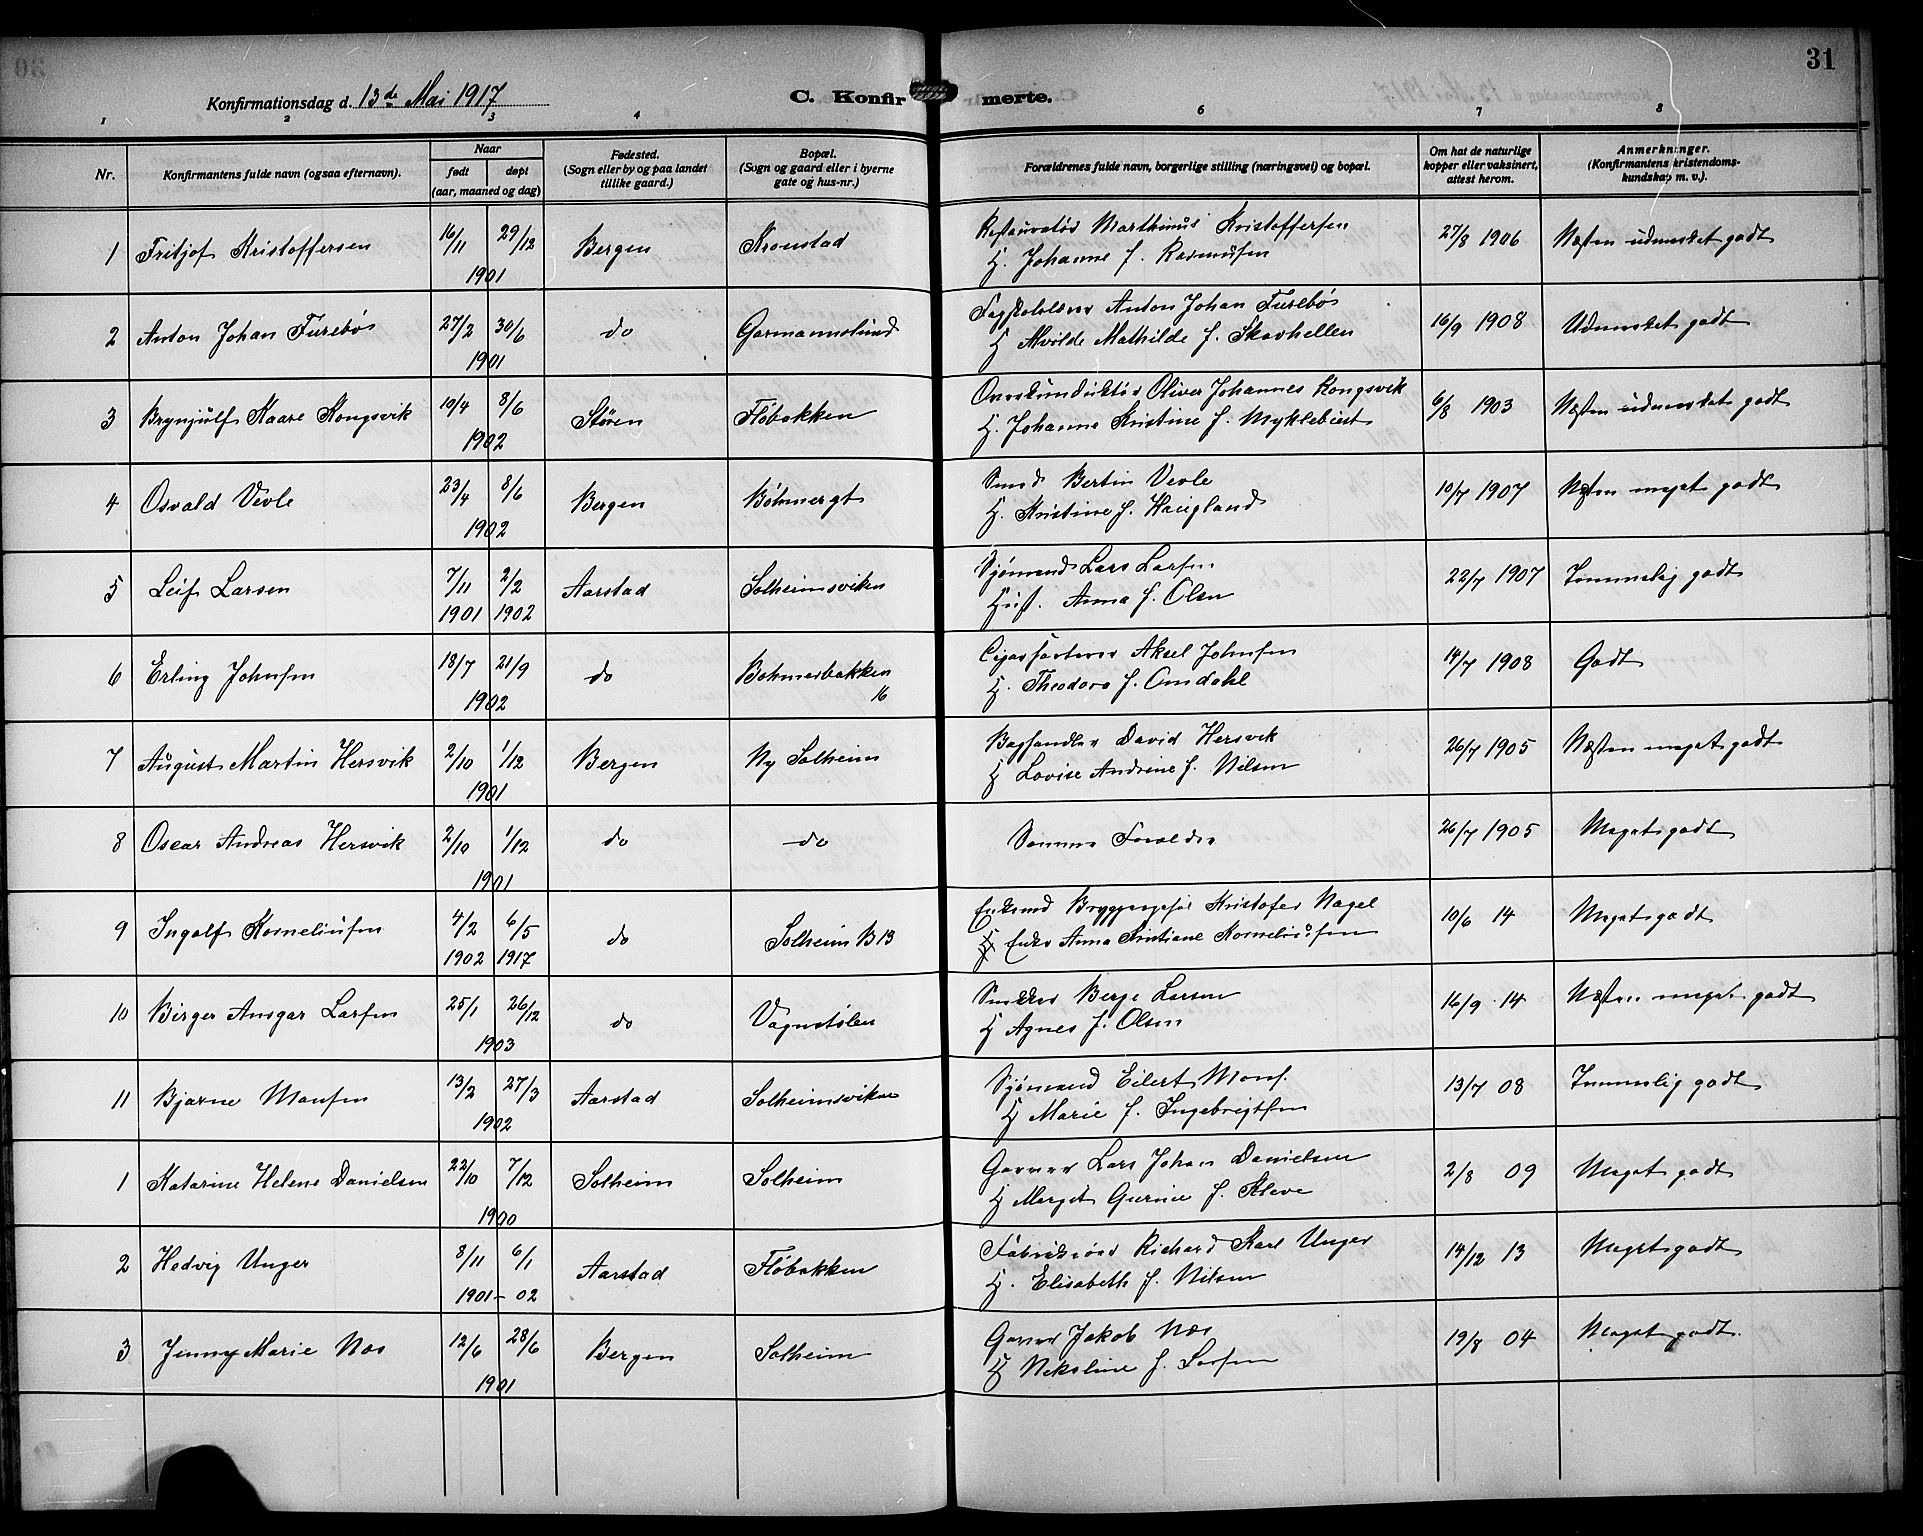 31
Konfirmationsdag d. 13de Mai 1917
C. Konfirmerte.
1 2 3 4 6 7 8
Nr.
Konfirmantens fulde navn (ogsaa efternavn).
Naar
født døpt
(aar, maaned og dag)
Fødested.
(Sogn eller by og paa landet
tillike gaard.)
Bopæl.
(Sogn og gaard eller i byerne
gate og hus-nr.)
Forældrenes fulde navn, borgerlige stilling (næringsvei) og bopæl.
Om hat de naturlige
kopper eller vaksinert,
attest herom.
Anmerkninger.
(Konfirmantens kristendoms-
kundskap m. v.).
1 Fritjof Kristoffersen 16/11 29/12 1901 Bergen Kronstad
Restauratør Marthinus Kristoffersen
H. Johanne f. Rasmusen
27/8 1906 Næsten udmerket godt
2 Anton Johan Furebø 27/2 30/6 1901 do Garmannslund
Anton Johan Furebø
H Alvilde Mathilde f. Skavhellen
16/9 1908 Udmerket godt
3 Brynjulf Kaare Kongsvik 10/4 8/6 1902 Støren Fløbakken
Overkonduktør Oliver Johannes Kongsvik
H. Johanne Kristine f. Myklebust
6/8 1903 Næsten udmerket godt
4 Osvald Vevle 23/4 8/6 1902 Bergen Bøhmergt
Smed Bertin Vevle
H. Kristine f. Haugland
10/7 1907 Næsten meget godt
5 Leif Larsen 7/11 1901 2/2 1902 Aarstad Solheimsviken
Sjømand Lars Larsen
Hust. Anna f. Olsen
22/7 1907 Temmelig godt
6 Erling Johnsen 18/7 21/9 1902 do Bohmerbakken
16
Cigarsorterer Aksel Johnsen
H. Theodora f. Amdahl
14/7 1908 Godt
7 August Martin Hersvik 2/10 1/12 1901 Bergen Ny Solheim
David Hersvik
H Lovise Andrine f. Nilsen
26/7 1905 Næsten meget godt
8 Oscar Andreas Hersvik 2/10 1/12 1901 do do
Samme Forældre
26/7 1905 Meget godt
9 Ingolf Korneliusen 4/2 1902 6/5 1917 do Solheim B 13
Enkemd Kristofer Nagel
Enke Anna Kristiane Korneliusen
10/6 14 Meget godt
10 Birger Ansgar Larsen 25/1 26/12 1903 do Vognstølen
Snekker Berge Larsen
H Agnes f. Olsen
16/9 14 Næsten meget godt
11 Bjarne Monsen 13/2 27/3 1902 Aarstad Solheimsviken
Sjømand Eilert Mons.
H Marie f. Ingebrigtsen
13/7 08 Temmelig godt
1 Katarine Helene Danielsen 22/10 7/12 1900 Solheim Solheim
Garver Lars Johan Danielsen
H Marget Gurine f. Kleve
2/8 09 Meget godt
2 Hedvig Unger 8/11 6/1 1901 - 02 Aarstad Fløbakken
Richard Karl Unger
H. Elisabeth f. Nilsen
14/12 13 Meget godt
3 Jenny Marie Næs 12/6 28/6 1901 Bergen Solheim
Garver Jakob Næs
H Nikoline f. Larsen
19/8 04 Meget godt.